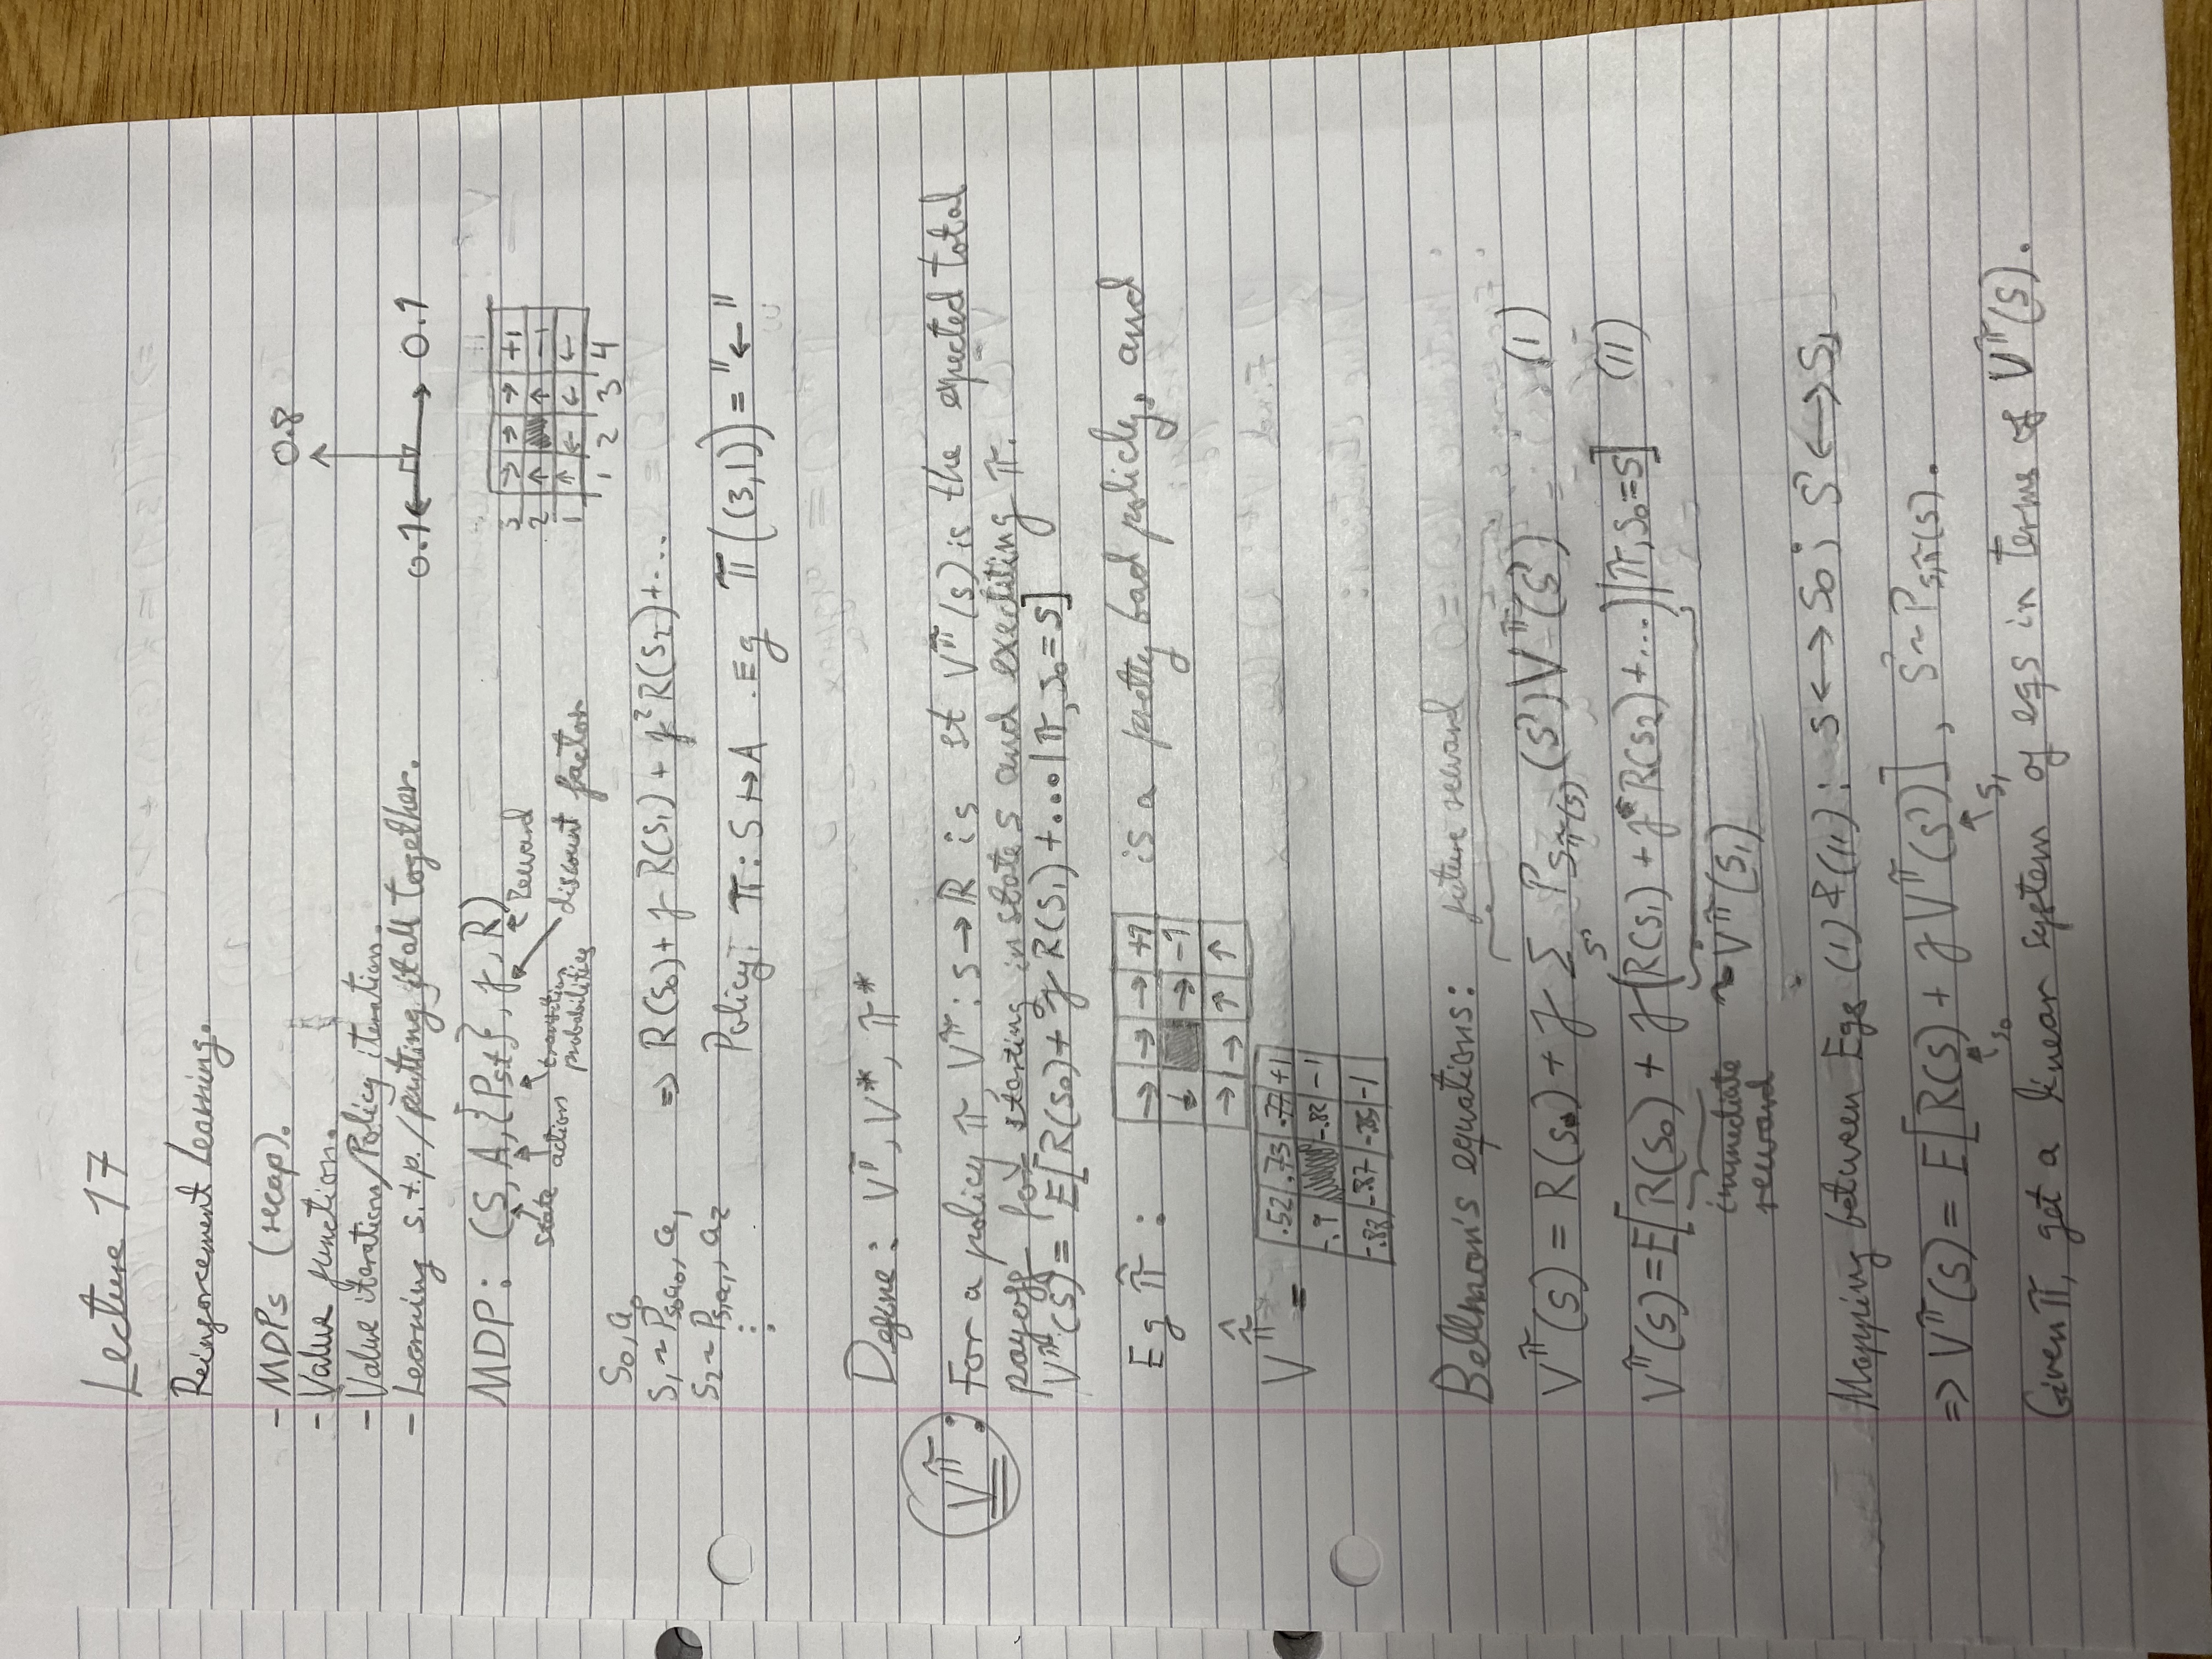 Lecture 17
Reinforcement Learning.
- MDPs (recap).
- Value function.
- Value iteration/Policy iteration.
- Learning s.t.p./putting it all together.
0.8
0.1 ← → 0.1
MDP: (S, A, {Pst}, γ, R)
state action transition probabilities discount factor Reward
3 → → → +1
2 ↑ ↑ -1
1 ↑ ← ← ←
1 2 3 4
S₀, a₀
S₁ ~ Ps₀a₀, a₁ ⇒ R(s₀) + γ R(s₁) + γ² R(s₂) + ...
S₂ ~ Ps₁a₁, a₂
⋮
Policy: π: S ↦ A . Eg π((3,1)) = "←"
Define: V^π, V*, π*
V^π: For a policy π, V^π: s → ℝ is st V^π(s) is the expected total
payoff for starting in state s and executing π.
V^π(s) = E[R(s₀) + γ R(s₁) + ... | π, s₀ = s]
Eg π̂ : is a pretty bad policly, and
→ → → +1
↓ → -1
→ → ↑ ↑
V^π̂ =
.52 .73 .77 +1
-.9 -.82 -1
-.88 -.87 -.85 -1
Bellman's equations: future reward
V^π(s) = R(s) + γ Σs' Psπ(s)(s') V^π(s') (I)
V^π(s) = E[R(s₀) + γ(R(s₁) + γ R(s₂) + ...) | π, s₀ = s] (II)
immediate ~ V^π(s₁)
reward
Mapping between Eqs (I) & (II): s ↔ s₀; s' ↔ s₁
⇒ V^π(s) = E[R(s) + γ V^π(s')], s' ~ Ps,π(s).
↑ s₀ ↑ s₁
Given π, get a linear system of eqs in terms of V^π(s).